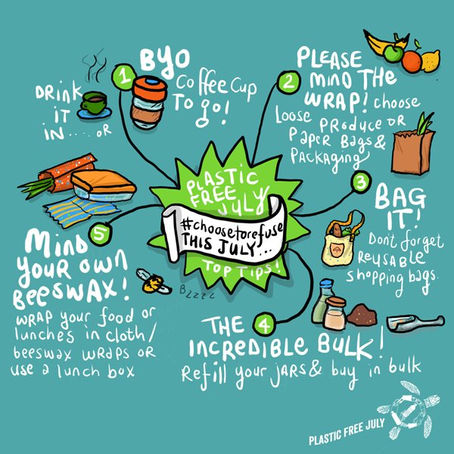 PLASTIC
FREE
JULY
#choosetorefuse
THIS JULY...
TOP TIPS!
1
DRINK
IT
IN.... or
BYO
Coffee Cup
To go!
2
PLEASE
MIND THE
WRAP! choose
Loose Produce or
Paper Bags &
Packaging
3
BAG
IT!
Don't forget
Reusable
shopping bags.
4
THE
INCREDIBLE BULK!
Refill your jars & buy in bulk
5
MIND
YOUR OWN
BEESWAX!
WRAP your food or
lunches in cloth/
beeswax wraps or
use a lunch box
Bzzzz
PLASTIC FREE JULY